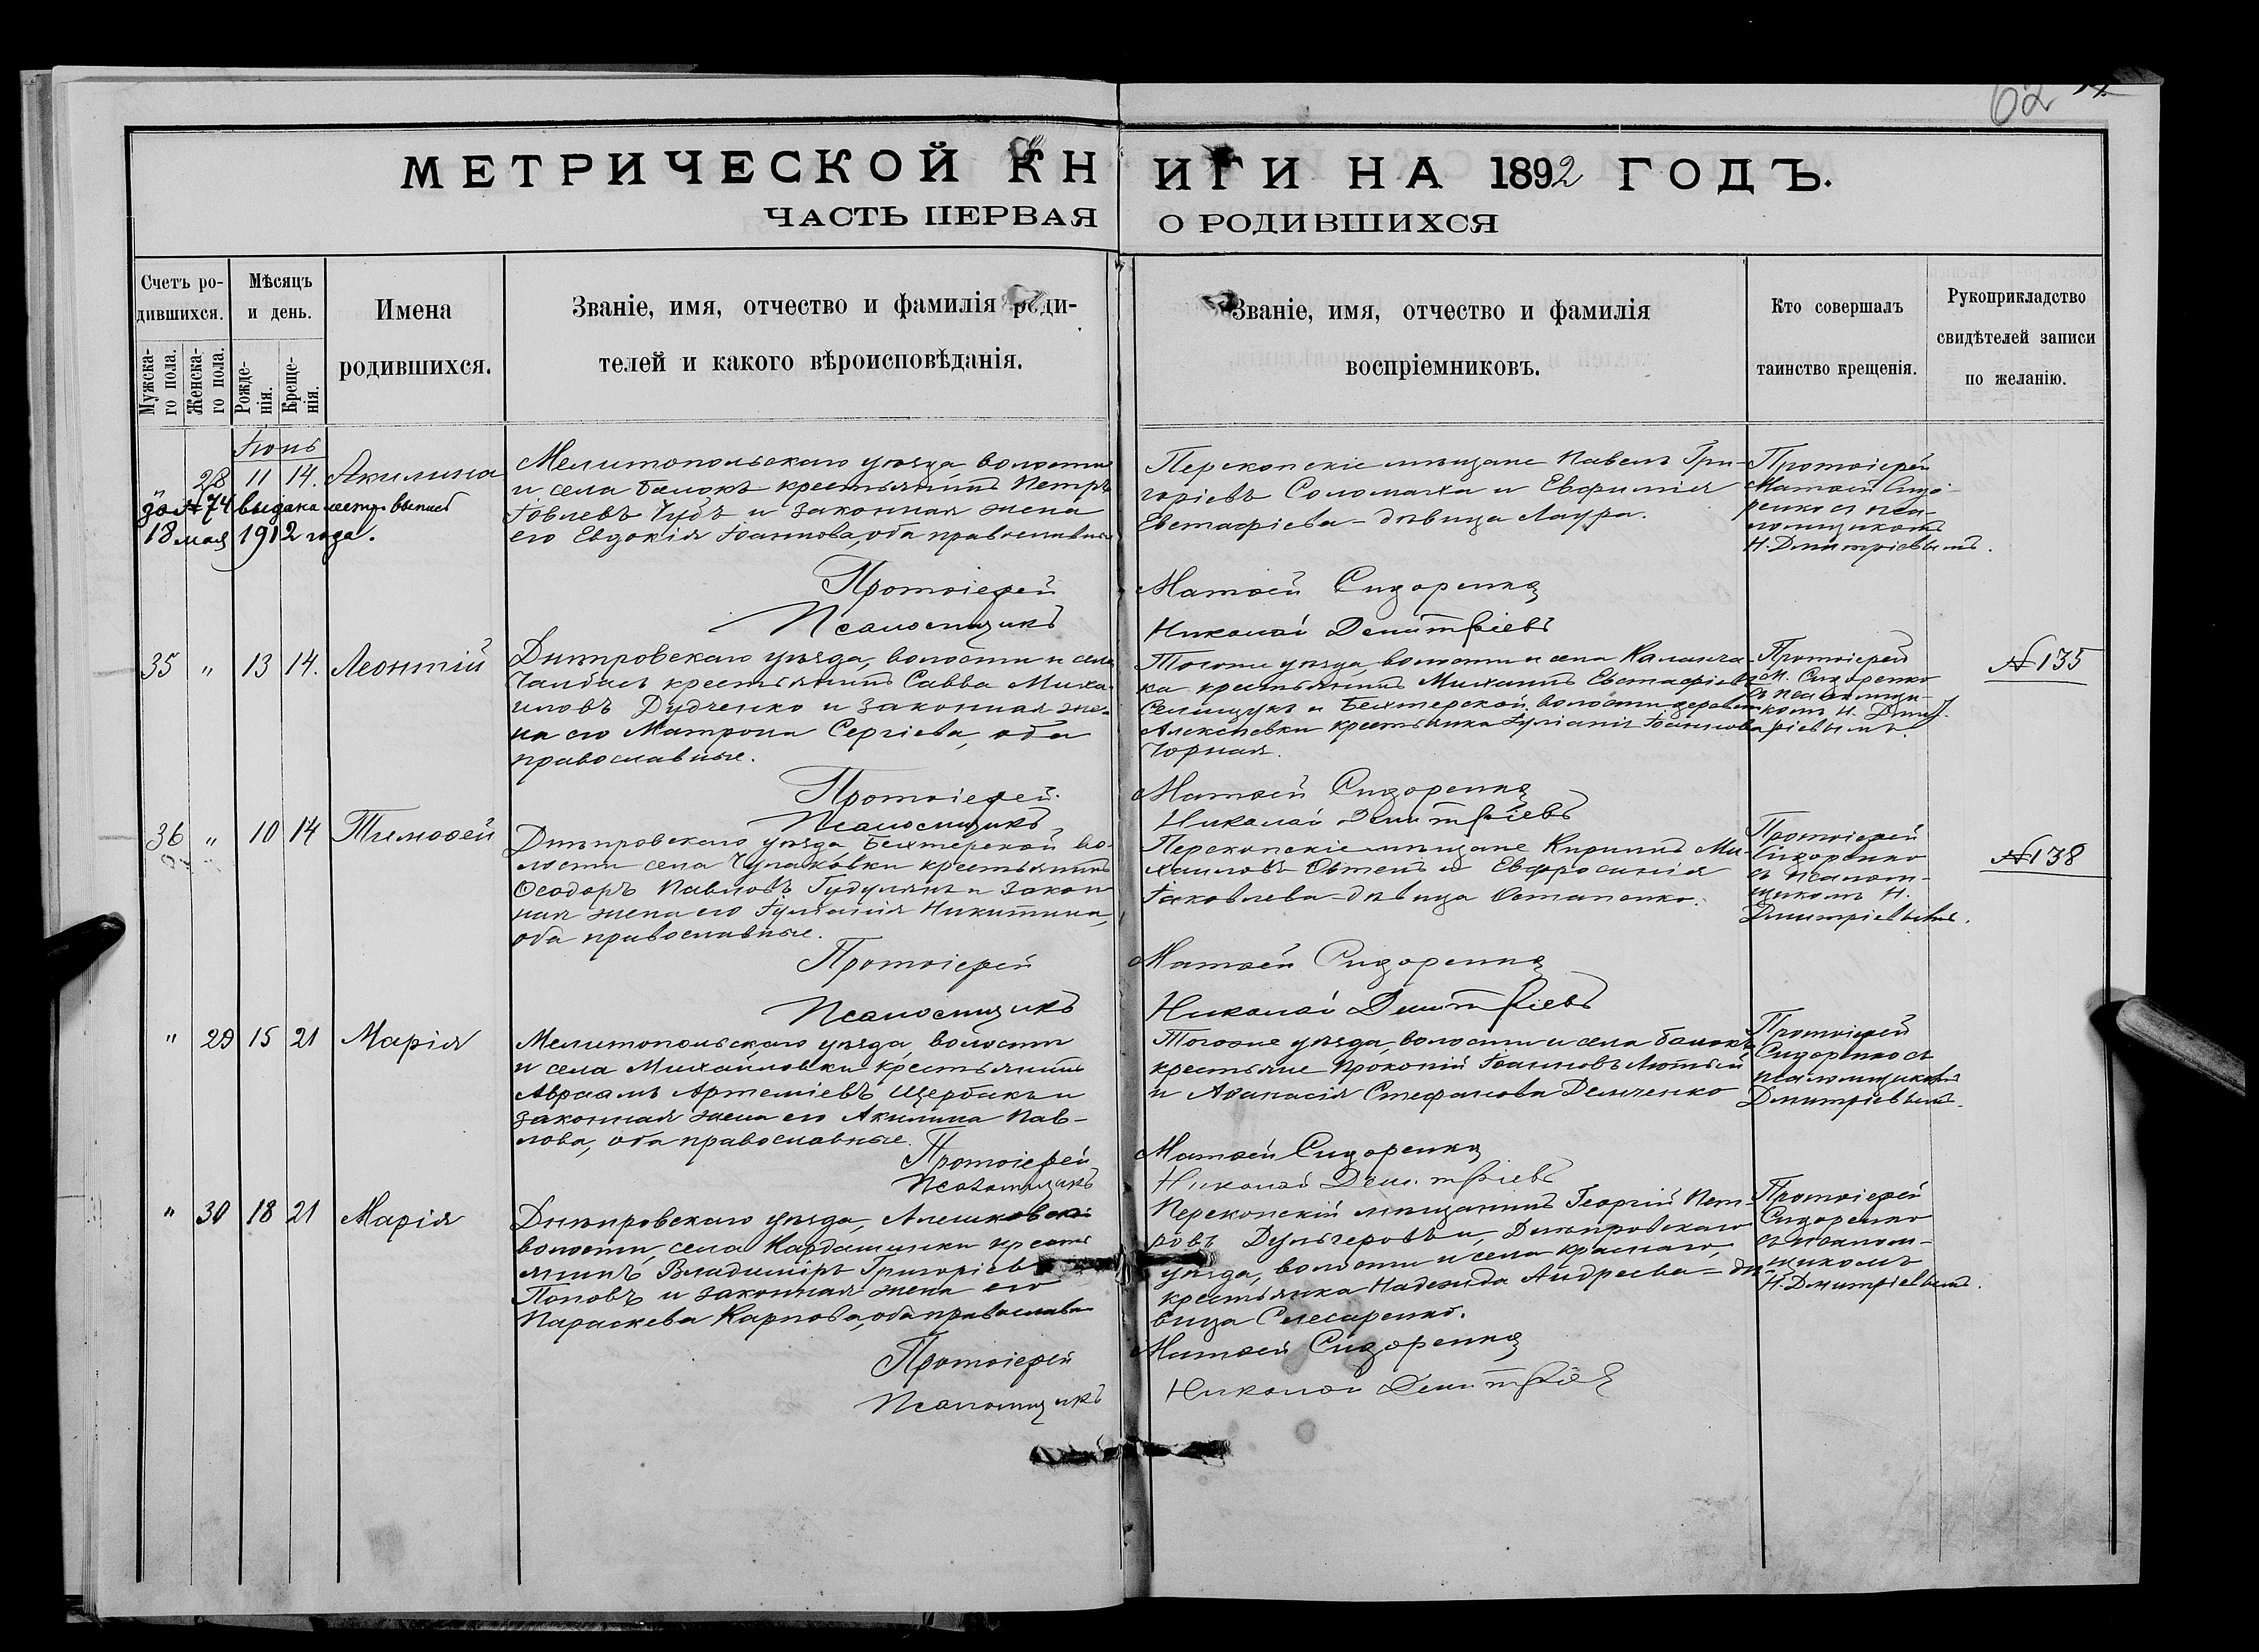 62
МЕТРИЧЕСКОЙ КНИГИ НА 1892 ГОДЪ.
ЧАСТЬ ПЕРВАЯ О РОДИВШИХСЯ
Счетъ ро-
дившихся.
Мужска-
го пола.
Женска-
го пола.
Мѣсяцъ
и день.
Рожде-
нія.
Креще-
нія.
Имена
родившихся.
Званіе, имя, отчество и фамилія роди-
телей и какого вѣроисповѣданія.
Званіе, имя, отчество и фамилія
воспріемниковъ.
Кто совершалъ
таинство крещенія.
Рукоприкладство
свидѣтелей записи
по желанію.
Іюнь
28 11 14. Акилина
№ 74 выдана метр. выпись
18 мая 1912 года.
Мелитопольскаго уѣзда, волости
и села Балокъ крестьянинъ Петръ
Іовлевъ Чубъ и законная жена
его Евдокія Іоаннова, оба православные
Перекопскіе мѣщане Павелъ Гри-
горіевъ Соломаха и Евфимія
Евстафіева - дѣвица Лаура.
Протоіерей
Матѳей Сидо-
ренко съ пса-
ломщикомъ
Н. Дмитріевымъ.
Протоіерей Матѳей Сидоренко
Псаломщикъ Николай Дмитріевъ
35 " 13 14. Леонтій
Днѣпровскаго уѣзда, волости и села
Чалбасъ крестьянинъ Савва Миха-
иловъ Дудченко и законная же-
на его Матрона Сергіева, оба
православные.
Тогоже уѣзда, волости и села Каланча-
ка крестьянинъ Михаилъ Евстафіевъ
Селищукъ и Бехтерской волости деревни
Алексѣевки крестьянка Іуліанія Іоаннова
Чорная.
Протоіерей
М. Сидоренко
съ псаломщи-
комъ Н. Дмит-
ріевымъ.
№ 135
Протоіерей Матѳей Сидоренко
Псаломщикъ Николай Дмитріевъ
36 " 10 14 Тимоѳей
Днѣпровскаго уѣзда Бехтерской во-
лости села Чулаковки крестьянинъ
Ѳеодоръ Павловъ Гудулянъ и закон-
ная жена его Іуліанія Никитина,
оба православные.
Перекопскіе мѣщане Кириллъ Ми-
хаиловъ и Евфросинія
Іаковлева - дѣвица Остапенко.
Протоіерей
Сидоренко
съ псалом-
щикомъ Н.
Дмитріевымъ.
№ 138
Протоіерей Матѳей Сидоренко
Псаломщикъ Николай Дмитріевъ
" 29 15 21 Марія
Мелитопольскаго уѣзда, волости
и села Михайловки крестьянинъ
Авраамъ Артеміевъ Щербакъ и
законная жена его Акилина Пав-
лова, оба православные.
Тогоже уѣзда, волости и села Балокъ
крестьяне Прокопій Іоанновъ Лютый
и Аѳанасія Стефанова Демченко
Протоіерей
Сидоренко съ
псаломщикомъ
Дмитріевымъ.
Протоіерей Матѳей Сидоренко
Псаломщикъ Николай Дмитріевъ
" 30 18 21 Марія
Днѣпровскаго уѣзда, Алешковской
волости, села Кардашинки кресть
янинъ Владиміръ Григоріевъ
Поповъ и законная жена его
Параскева Карпова, оба православные
Перекопскій мѣщанинъ Георгій Пет-
ровъ Дульгеровъ и, Днѣпровскаго
уѣзда, волости и села Краснаго,
крестьянка Надежда Андреева - дѣ-
вица Слесаренко.
Протоіерей
Сидоренко
съ псалом-
щикомъ
Н. Дмитріевымъ.
Протоіерей Матѳей Сидоренко
Псаломщикъ Николай Дмитріевъ